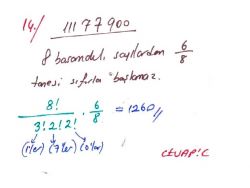 14./ 11177900
8 basamaklı sayılardan 6/8
tanesi sıfırla başlamaz.
8!/3!2!2! · 6/8 = 1260//
(1'ler) (7'ler) (0'lar)
CEVAP: C